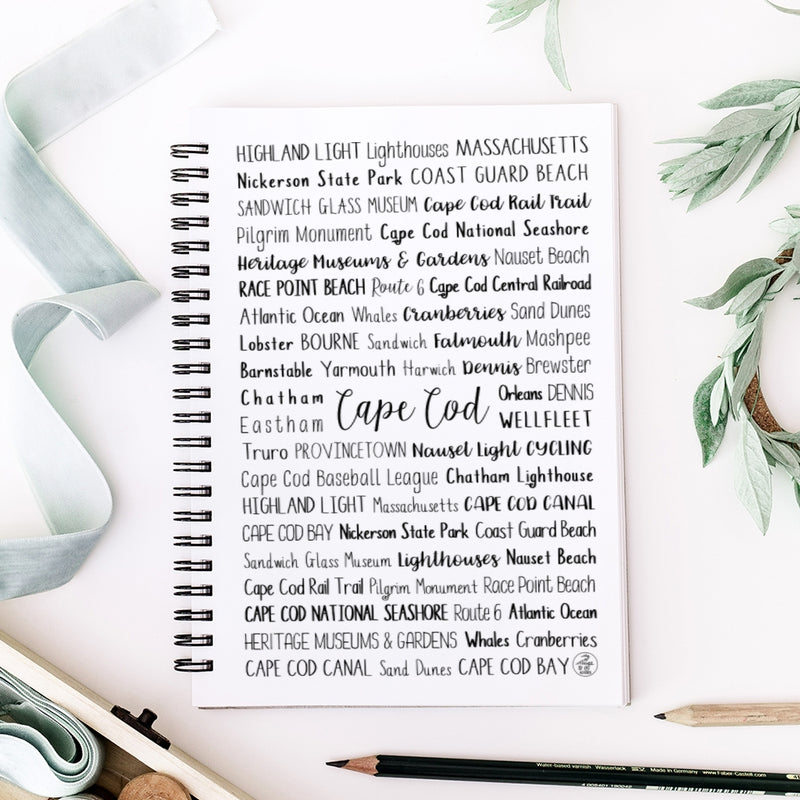 HIGHLAND LIGHT Lighthouses MASSACHUSETTS
Nickerson State Park COAST GUARD BEACH
SANDWICH GLASS MUSEUM Cape Cod Rail Trail
Pilgrim Monument Cape Cod National Seashore
Heritage Museums & Gardens Nauset Beach
RACE POINT BEACH Route 6 Cape Cod Central Railroad
Atlantic Ocean Whales Cranberries Sand Dunes
Lobster BOURNE Sandwich Falmouth Mashpee
Barnstable Yarmouth Harwich Dennis Brewster
Chatham Cape Cod Orleans DENNIS
Eastham WELLFLEET
Truro PROVINCETOWN Nauset Light CYCLING
Cape Cod Baseball League Chatham Lighthouse
HIGHLAND LIGHT Massachusetts CAPE COD CANAL
CAPE COD BAY Nickerson State Park Coast Guard Beach
Sandwich Glass Museum Lighthouses Nauset Beach
Cape Cod Rail Trail Pilgrim Monument Race Point Beach
CAPE COD NATIONAL SEASHORE Route 6 Atlantic Ocean
HERITAGE MUSEUMS & GARDENS Whales Cranberries
CAPE COD CANAL Sand Dunes CAPE COD BAY
Water-based varnish Wasserlack Made in Germany www.Faber-Castell.com